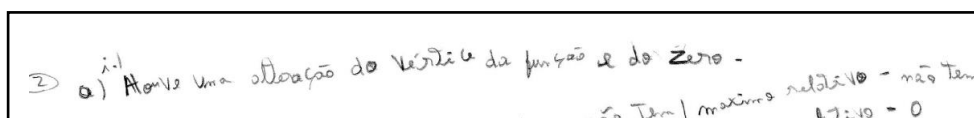 2 a) i.) Houve uma alteração do vértice da função e do zero.
não Tem / maximo relativo - não Tem
- 0